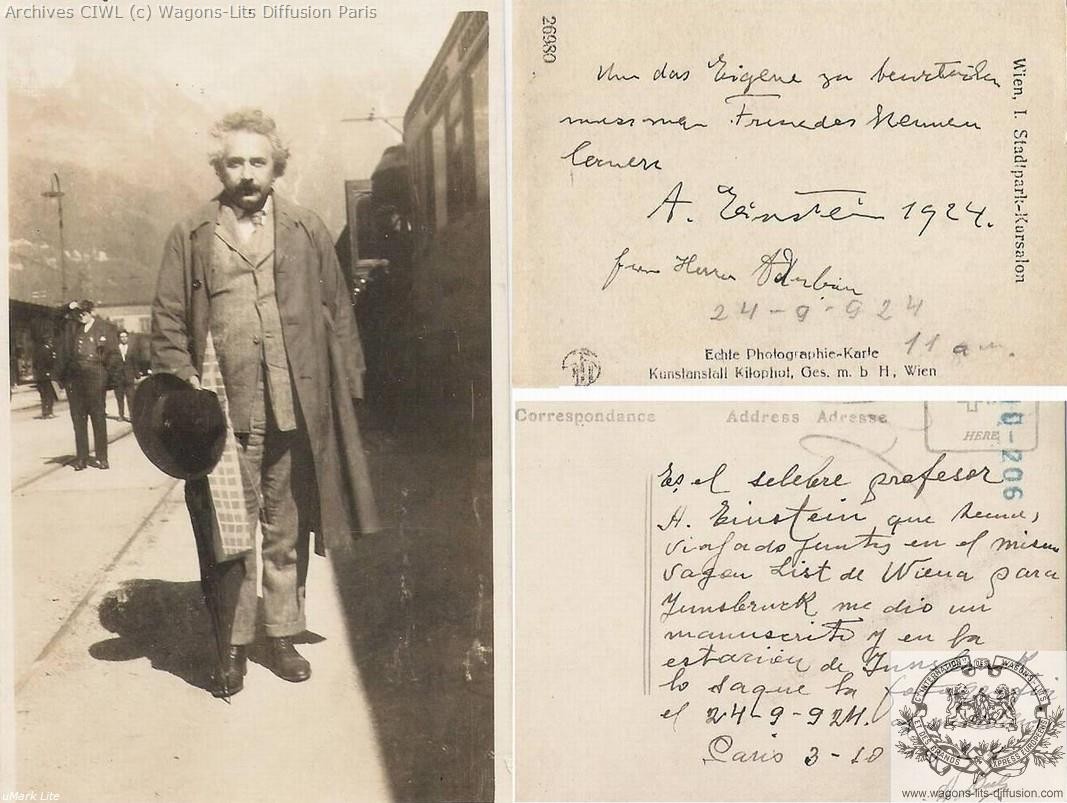 Archives CIWL (c) Wagons-Lits Diffusion Paris
26980
Um das Eigene zu beurteilen
muss man Fremdes kennen
lernen
A. Einstein 1924.
Herrn
24-9-924
11 a.m.
Wien, I. Stadtpark-Kursalon
Echte Photographie-Karte
Kunstanstalt Kilophot, Ges. m. b H., Wien
Correspondance Address Adresse
HERE
Es el selebre profesor
A. Einstein que hemos
viajado juntos en el mismo
vagon List de Wiena para
Junsbruck me dio un
manuscrito y en la
estación de
lo saque la
el 24-9-924.
Paris 3-10
CIE INTERNATION. DES WAGONS-LITS
ET DES GRANDS EXPRESS EUROPEENS
www.wagons-lits-diffusion.com
uMark Lite